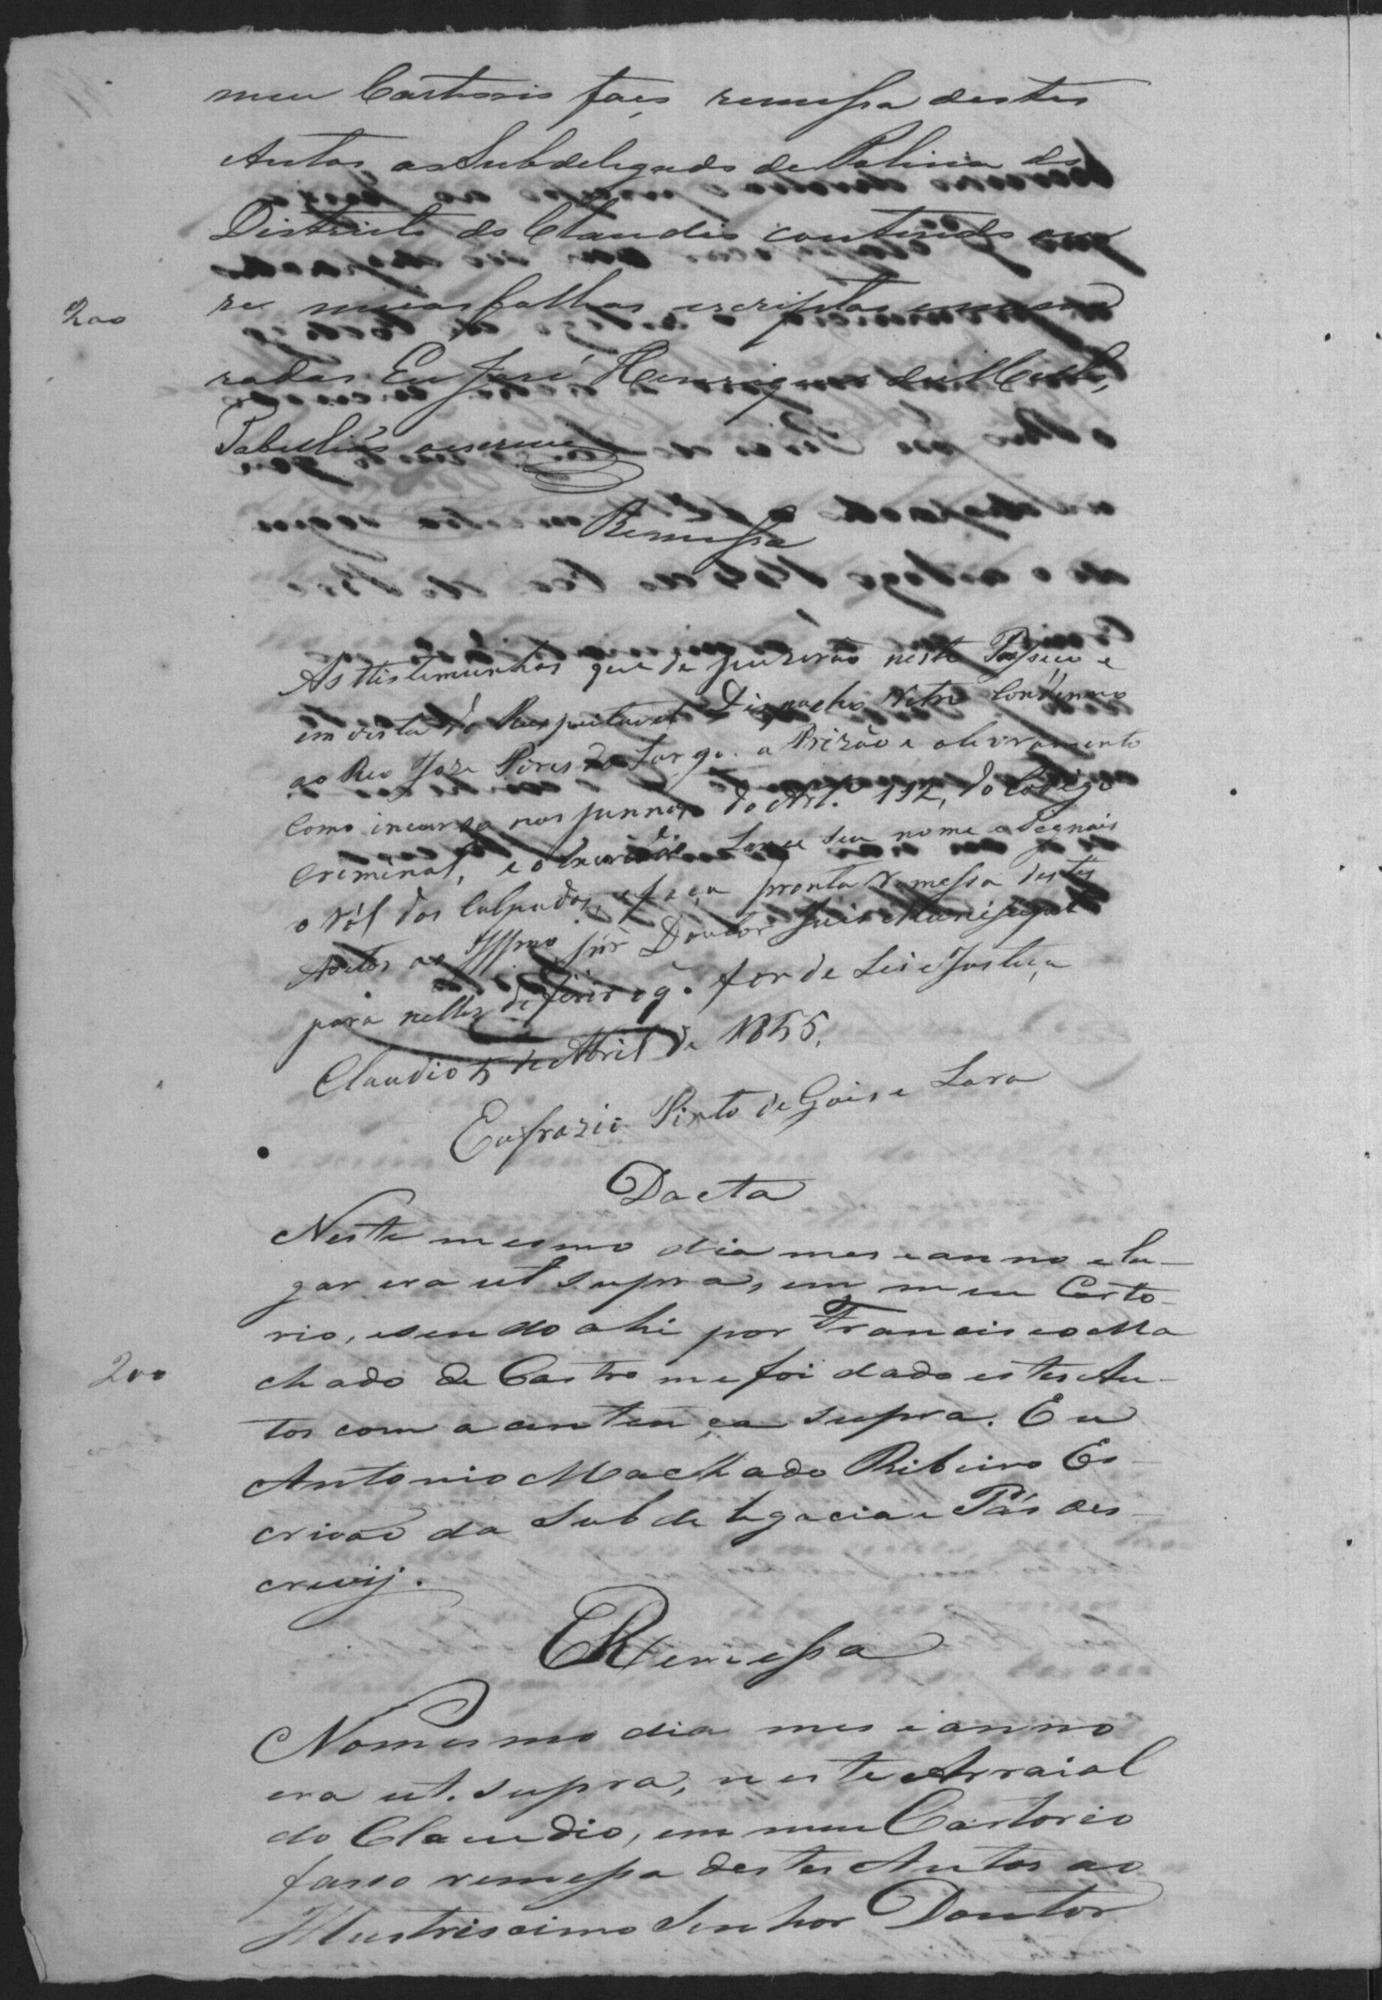 meu Cartorio faço remessa destes
Autos ao Subdelegado de Policia do
Districto do Claudio contendo on
ze meias folhas escriptas e nume
200
radas Eu José Henriques de Mello,
Tabellião o escrevi
Remessa
As testemunhas que depuzerão neste Processo e
em vista do Respeitavel Dispacho retro Condenno
ao Reo Joze Pires a Prizão e a livramento
Como incurso nas pennas do Art.º 192, do Codigo
Criminal, e o Escrivão Lance seu nome e Signais
o ról dos Culpados, e faça pronta remessa destes
Autos ao Illmo Snr Doutor Juis Municipal
para nelles diferir o q. for de Lei e Justiça
Claudio 5 de Abril de 1855.
Eufrazio Pinto de Gois e Lara
Dacta
Neste mesmo dia mes e anno e lu-
gar era ut supra, em meu Carto-
rio, e sendo ahi por Francisco Ma
chado de Castro me foi dado estes Au-
200
tos com a centença supra. Eu
Antonio Machado Ribeiro Es-
crivão da Subdelegacia e Pás oes-
crevij.
Remessa
No mesmo dia mes e anno
era ut. supra, neste Arraial
do Claudio, em meu Cartorio
fasso remessa destes Autos ao
Illustriscimo Senhor Doutor